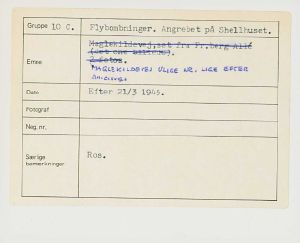 Gruppe 10 C. Flybombninger. Angrebet på Shellhuset.
Emne Maglekildevej,set fra Fr.berg Allé
(det ene
2 fotos.
MAGLEKILDEVEJ ULIGE NR. LIGE EFTER
Dato Efter 21/3 1945.
Fotograf
Neg. nr.
Særlige Ros.
bemærkninger